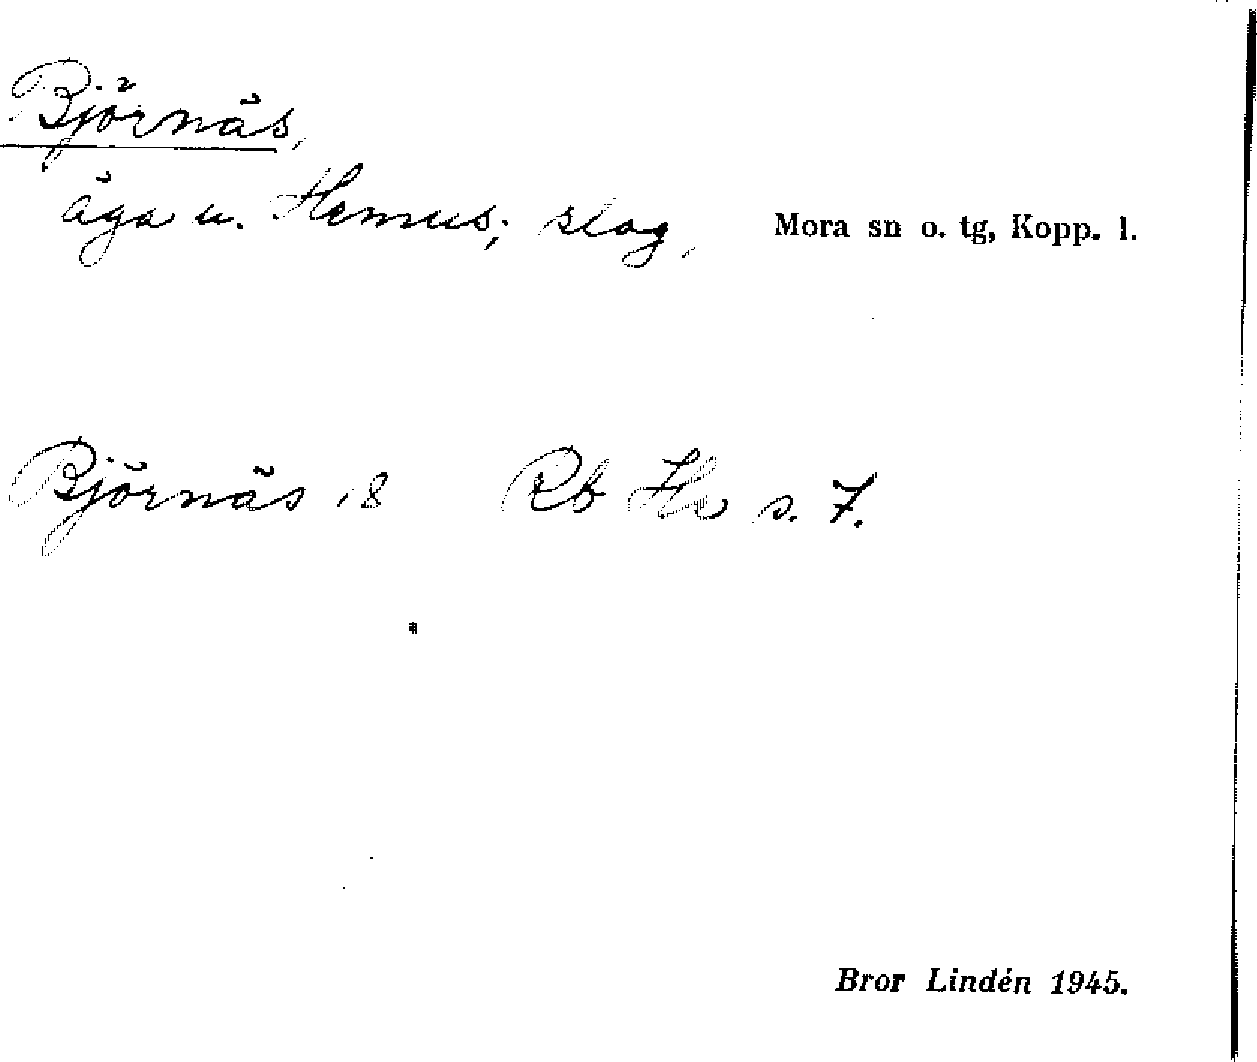 Björnäs,
äga u. Hemus; slog, Mora sn o. tg, Kopp. l.
Björnäs 18 Rb Hs s. 7.
Bror Lindén 1945.